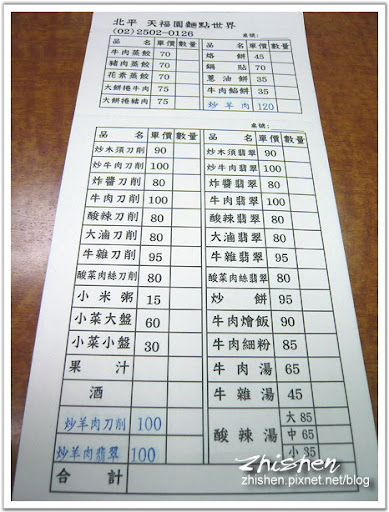 北平 天福園麵點世界
(02)2502-0126 桌號:
品名 單價 數量 品名 單價 數量
牛肉蒸餃 70 烙餅 45
豬肉蒸餃 70 鍋貼 70
花素蒸餃 70 蔥油餅 35
大餅捲牛肉 75 牛肉餡餅 35
大餅捲豬肉 75 炒羊肉 120
桌號:
品名 單價 數量 品名 單價 數量
炒木須刀削 90 炒木須翡翠 90
炒牛肉刀削 100 炒牛肉翡翠 100
炸醬刀削 80 炸醬翡翠 80
牛肉刀削 100 牛肉翡翠 100
酸辣刀削 80 酸辣翡翠 80
大滷刀削 80 大滷翡翠 80
牛雜刀削 95 牛雜翡翠 95
酸菜肉絲刀削 80 酸菜肉絲翡翠 80
小米粥 15 炒餅 95
小菜大盤 60 牛肉燴飯 90
小菜小盤 30 牛肉細粉 85
果汁 牛肉湯 65
酒 牛雜湯 45
炒羊肉刀削 100 酸辣湯 大 85
中 65
炒羊肉翡翠 100 小 35
合計
zhishen
zhishen.pixnet.net/blog